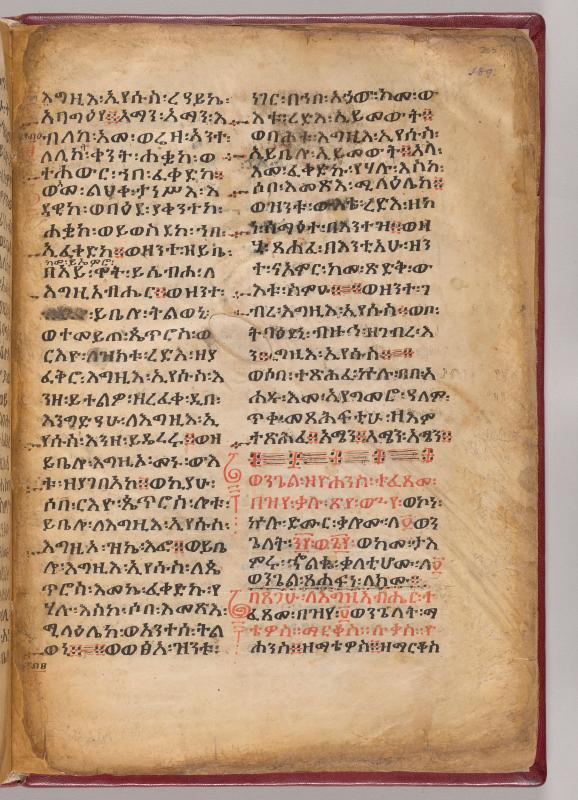 እግዚእ፡ኢየሱስ፡ረዓይኬ፡
አባግዕየ፡፡አማን፡አማን፡እ
ብለከ፡አመ፡ወሬዛ፡አንተ፡
ለሊከ፡ቀንት፡ሐቌከ፡ወ
ተሐውር፡ኀበ፡ፈቀድከ፡፡
ወእመ፡ልህቀ፡ታነሥእ፡እ
ደዊከ፡ወበዕደ፡ያቀንተከ፡
ሐቌከ፡ወይወስደከ፡ኀበ፡
ኢፈቀድከ፡፡ወዘንተ፡ዘይቤ፡
በአይ፡ሞት፡ይሴብሖ፡ለ
እግዚአብሔር፡፡ወዘንተ፡
ይቤሎ፡ትልወኒ፡
ወተመይጠ፡ጴጥሮስ፡ወ
ርእዮ፡ለዝክቱ፡ረድእ፡ዘያ
ፈቅሮ፡እግዚእ፡ኢየሱስ፡እ
ንዘ፡ይተልዎ፡ዘረፈቀ፡ዲበ፡
እንግድዓሁ፡ለእግዚእ፡ኢ
የሱስ፡እንዘ፡ይዴረር፡፡ወዘ
ይቤሎ፡እግዚኦ፡መኑ፡ውእ
ቱ፡ዘያገብአከ፡፡ወኪያሁ፡
ሶበ፡ርእዮ፡ጴጥሮስ፡ሎቱ፡
ይቤሎ፡ለእግዚእ፡ኢየሱስ፡
እግዚኦ፡ዝኬ፡እፎ፡፡ወይቤ
ሎ፡እግዚእ፡ኢየሱስ፡ለጴ
ጥሮስ፡እመኬ፡ፈቀድኩ፡የ
ሃሉ፡እስከ፡ሶበ፡እመጽእ፡
ሚላዕሌከ፡ወአንተሰ፡ትል
ወኒ፡፡ወወፅአ፡ዝንቱ፡
ነገር፡በኀበ፡አኃው፡ከመ፡ው
እቱ፡ረድእ፡ኢይመውት፡
ወቦሐቱ፡እግዚእ፡ኢየሱስ፡
ኢይቤሎ፡ኢይመውት፡፡አላ፡
እመ፡ፈቀድኩ፡የሃሉ፡እስከ፡
ሶበ፡እመጽእ፡ሚላዕሌከ፡፡
ወዝንቱ፡ውእቱ፡ረድእ፡ዘከ
ነ፡ስማዕተ፡በእንተዝ፡፡ወዘ
ሂ፡ጸሐፈ፡በእንቲአሁ፡ዘን
ተ፡ናአምር፡ከመ፡ጽድቅ፡ው
እቱ፡ስምዑ፡፡ወዘንተ፡ገ
ብረ፡እግዚእ፡ኢየሱስ፡፡ወቦ፡
ትባዕደኒ፡ብዙኅ፡ዘገብረ፡እ
ግዚእ፡ኢየሱስ፡፡
ወሶበ፡ተጽሕፈ፡ኵሉ፡በበአ
ሐዱ፡እመ፡ኢያግመሮ፡ዓለም፡
ጥቀ፡መጻሕፍቲሁ፡ዘእም
ተጽሕፈ፡፡አሜን፡፡አሜን፡አሜን፡፡
ወንጌል፡ዘዮሐንስ፡ተፈጸመ፡
በዝየ፡ቃሉ፡ወኮነ፡
ኵሉ፡ድሙር፡ቃሎሙ፡ለ፬ወን
ጌላት፡ወከመ፡ታእ
ምሩ፡ኆልቈ፡ቃላቲሆሙ፡ለ፬
ወንጌል፡ጸሐፍነ፡ለክሙ፡፡
በጸጋሁ፡ለእግዚአብሔር፡ተ
ፈጸመ፡በዝየ፡፬ወንጌላት፡ማ
ቴዎስ፡ማርቆስ፡፡ሉቃስ፡ዮ
ሐንስ፡፡ዘማቴዎስ፡፡ዘማርቆስ